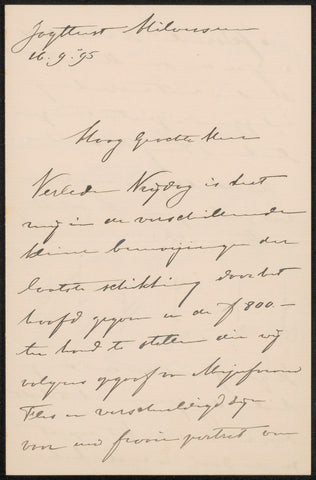 Jagtlust Hilversum
16.9.'95
Hoog Geachte Heer
Verleden Vrijdag is het
mij in de verschillende
kleine bemoeijingen der
laatste schikking door het
hoofd gegaan u de ƒ 800.–
ter hand te stellen die wij
volgens opgaaf van Mejufvrouw
Fles u verschuldigd zijn
voor uw fraaie portret van